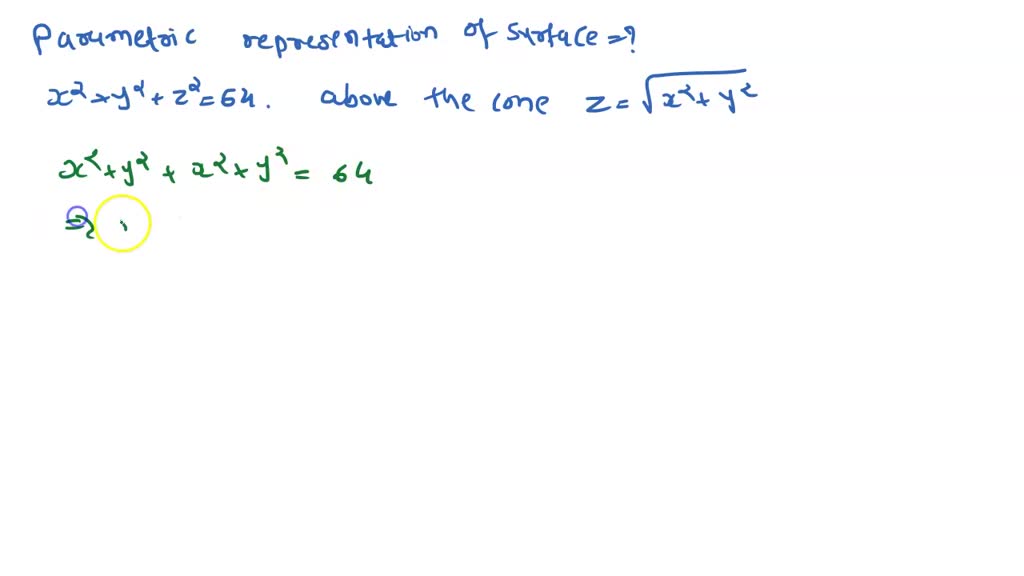 Parametric representation of surface = ?
x² + y² + z² = 64. above the cone z = √x² + y²
x² + y² + x² + y² = 64
⇒